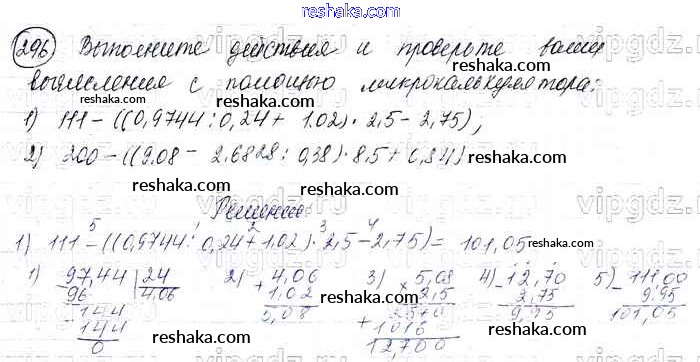 reshaka.com
296 Выполните действия и проверьте ваши
вычисления с помощью микрокалькулятора:
reshaka.com
1) 111 − ((0,9744 : 0,24 + 1.02) · 2,5 − 2,75);
2) 200 − ((9.08 − 2,6828 : 0,38) · 8,5 + 0,84)
reshaka.com
Решение
1) 111 − ((0,9744 : 0,24 + 1.02) · 2,5 − 2,75) = 101,05
reshaka.com
1) 97,44 | 24
96 4,06
144
144
0
2) + 4,06
1,02
5,08
3) × 5,08
2,5
2540
+ 1016
12,700
4) − 12,70
2,75
9,95
5) − 111,00
9,95
101,05
reshaka.com
vipgdz.com